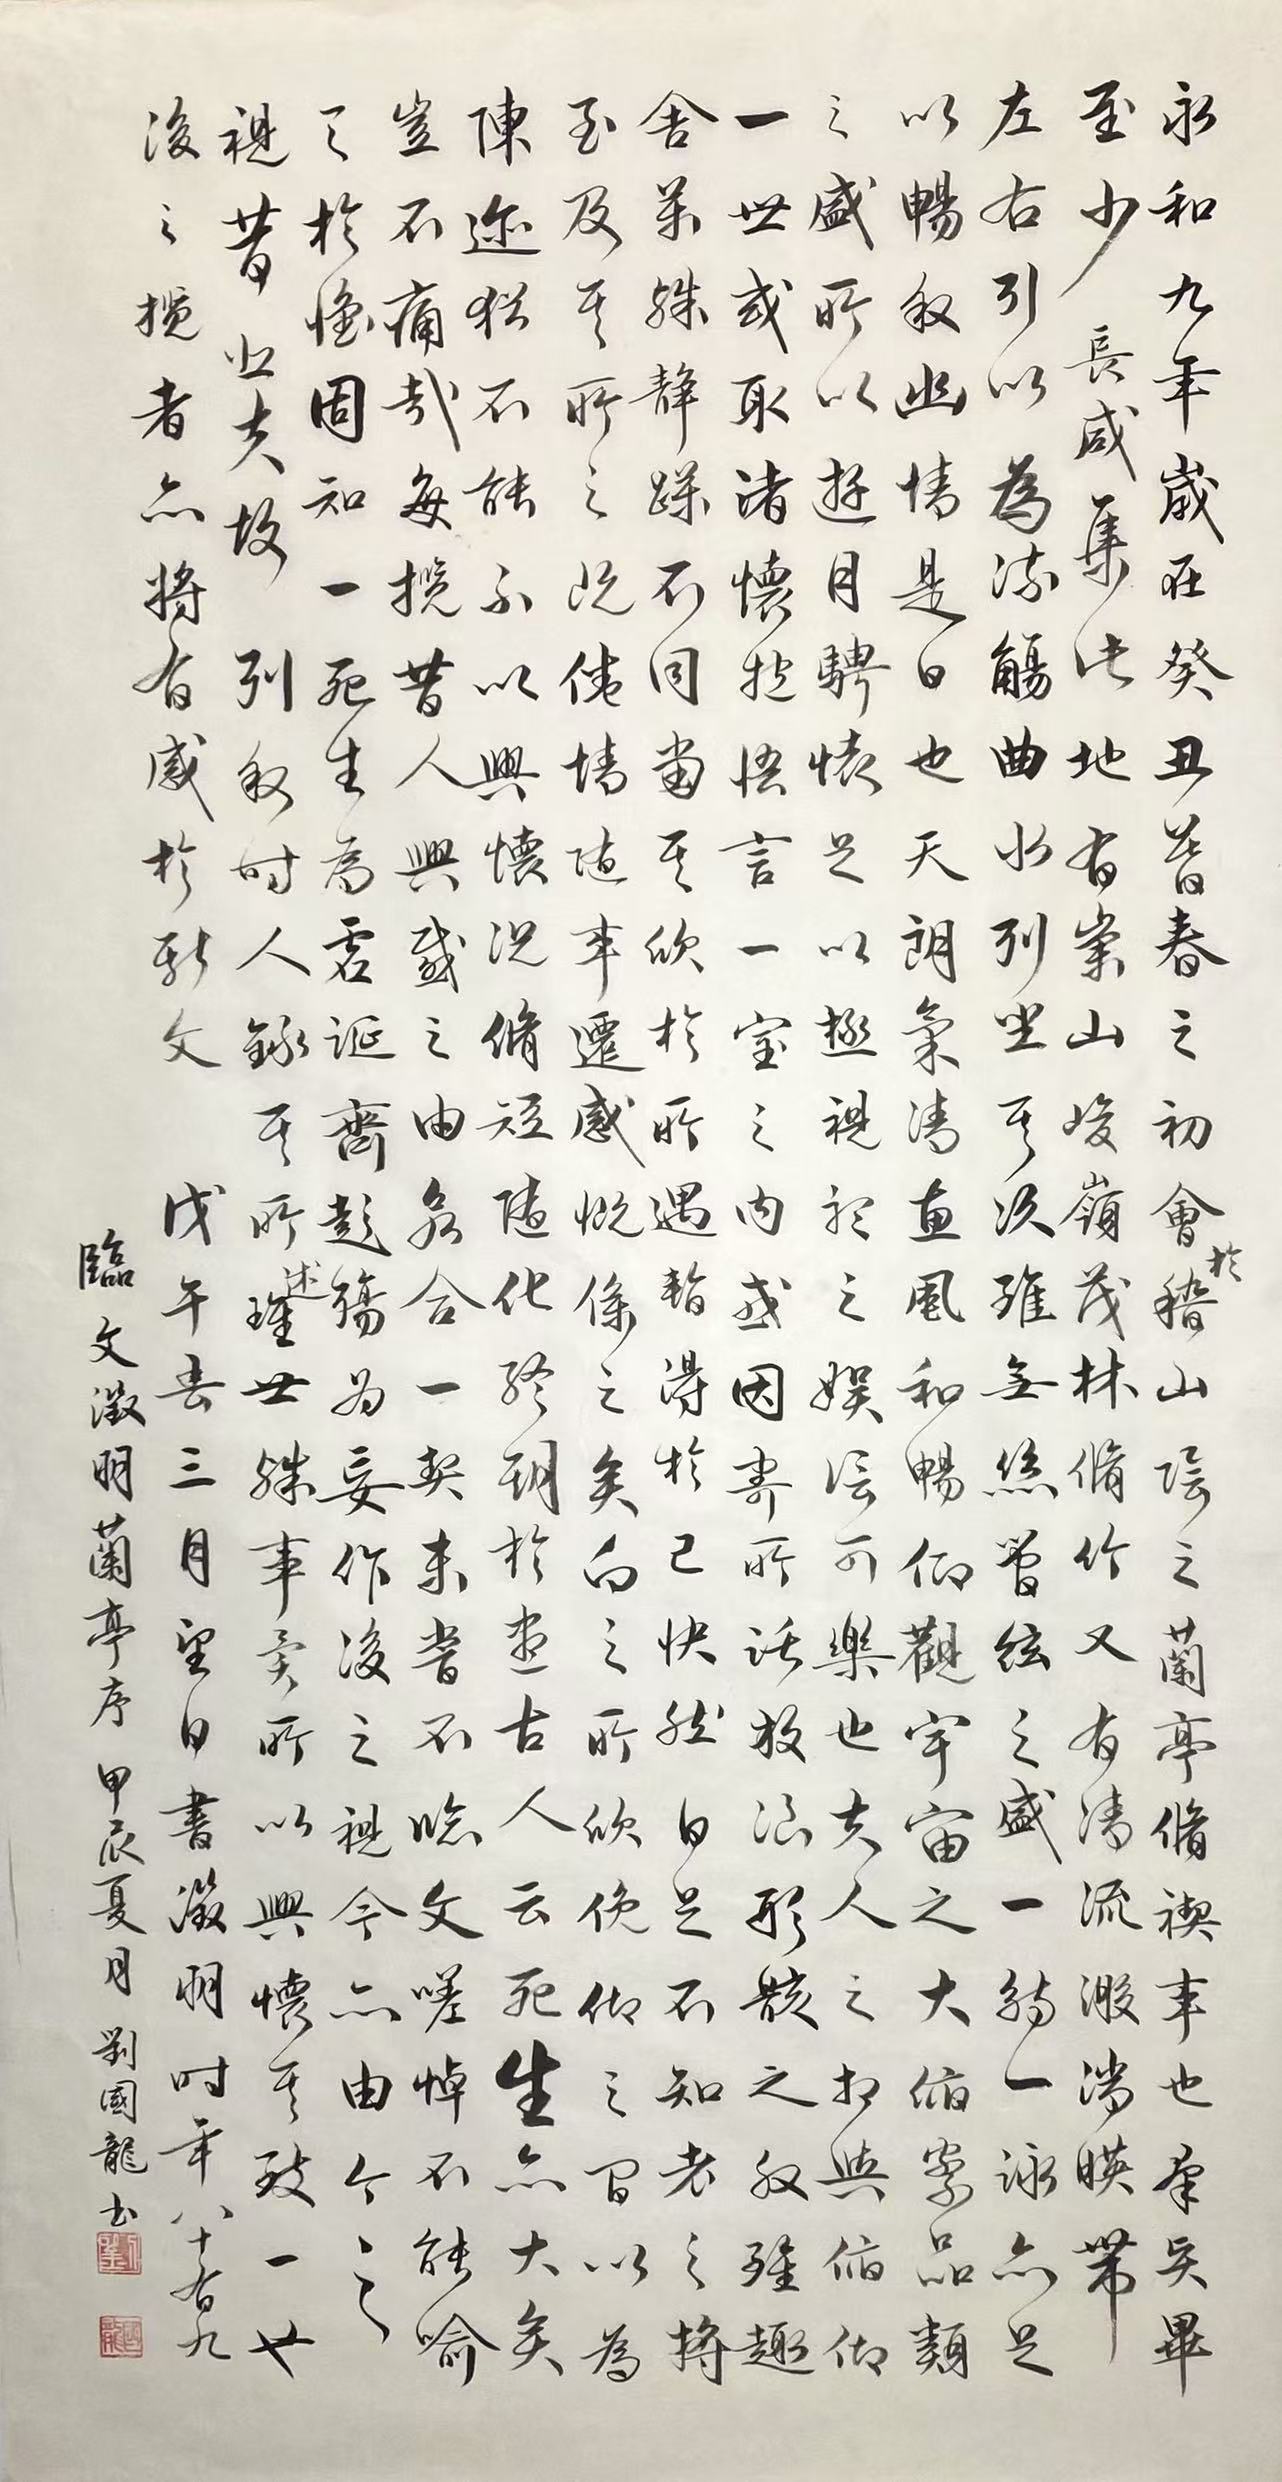 永和九年歲在癸丑暮春之初會於稽山陰之蘭亭脩禊事也羣賢畢
至少長咸集此地有崇山峻嶺茂林脩竹又有清流激湍暎帶
左右引以為流觴曲水列坐其次雖無絲管絃之盛一觴一詠亦足
以暢敘幽情是日也天朗氣清惠風和暢仰觀宇宙之大俯察品類
之盛所以遊目騁懷足以極視聽之娛信可樂也夫人之相與俯仰
一世或取諸懷抱悟言一室之內或因寄所託放浪形骸之外雖趣
舍萬殊靜躁不同當其欣於所遇暫得於己快然自足不知老之將
至及其所之既倦情隨事遷感慨係之矣向之所欣俛仰之間以為
陳迹猶不能不以興懷況脩短隨化終期於盡古人云死生亦大矣
豈不痛哉每攬昔人興感之由若合一契未嘗不臨文嗟悼不能喻
之於懷固知一死生為虛誕齊彭殤為妄作後之視今亦由今之
視昔悲夫故列敘時人錄其所述雖世殊事異所以興懷其致一也
後之攬者亦將有感於斯文 戊午春三月望日書徵明時年八十有九
臨文徵明蘭亭序 甲辰夏月 劉國龍書